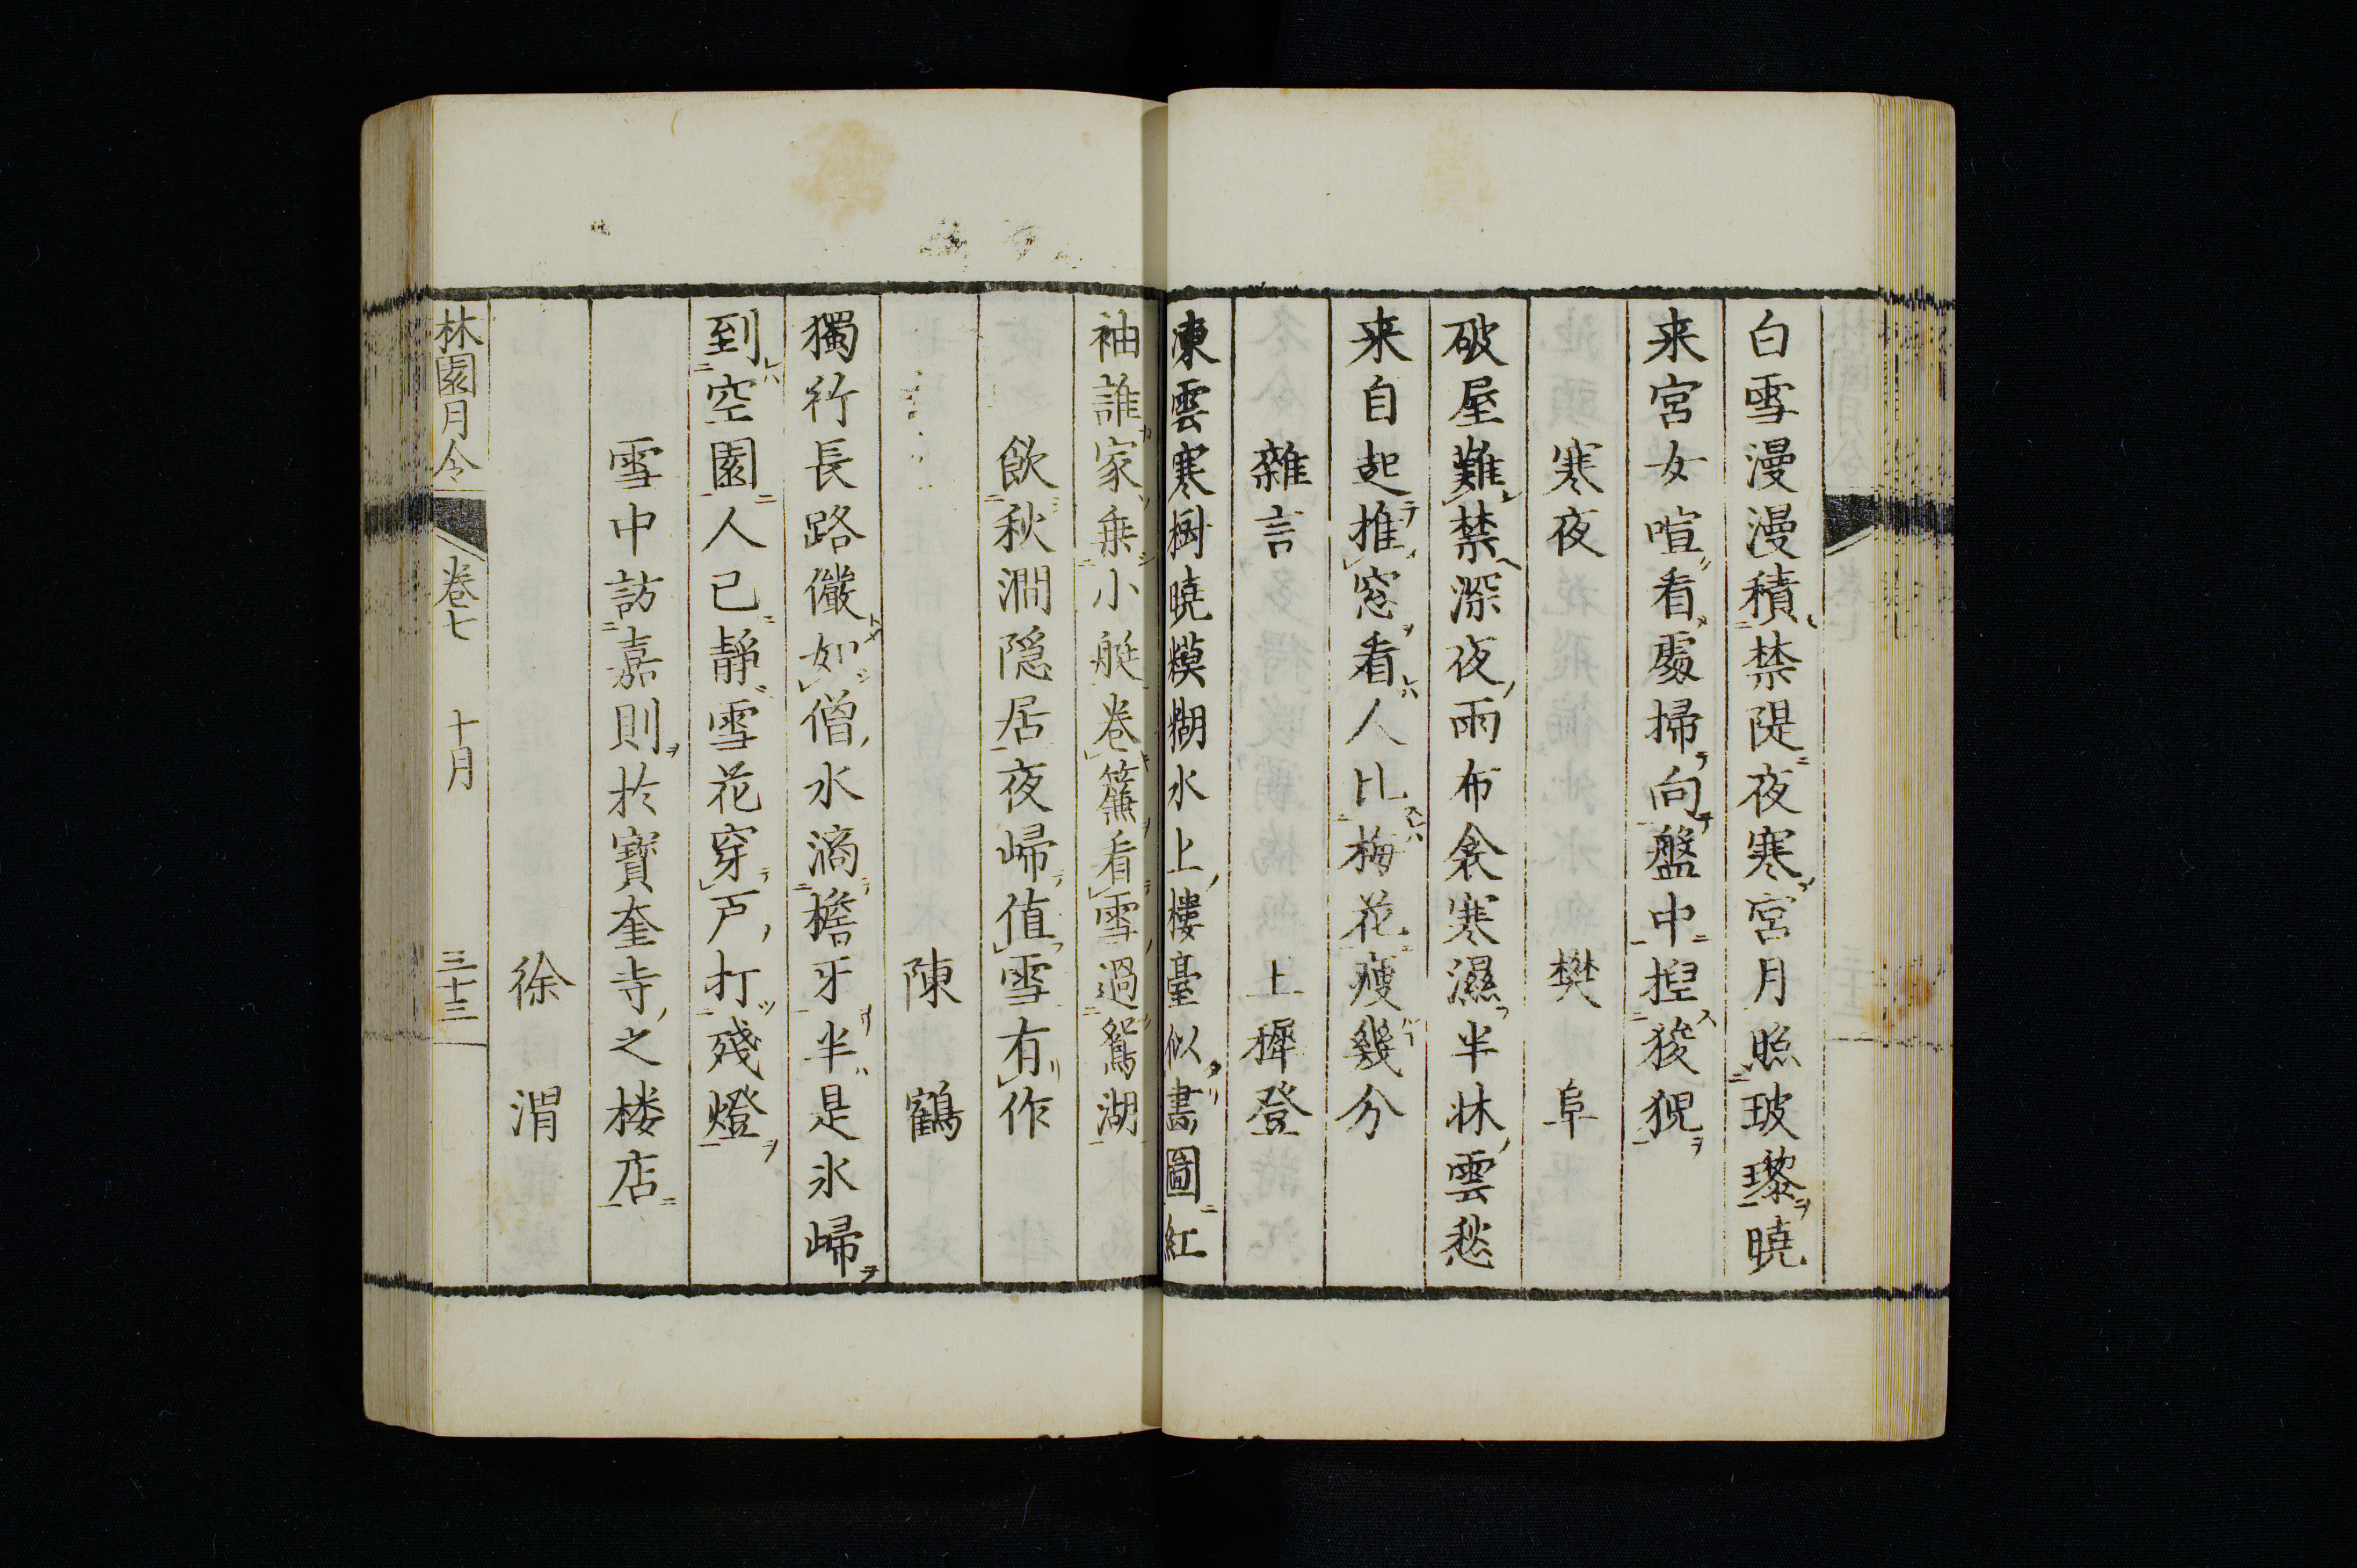 白雪漫漫積禁隄夜寒宮月照玻瓈曉
来宮女喧看處掃向盤中揑狻猊
寒夜 樊阜
破屋難禁深夜雨布衾寒濕半牀雲愁
来自起推窓看人比梅花痩幾分
雜言 上穉登
凍雲寒樹曉模糊水上樓臺似畫圖紅
袖誰家乗小艇卷簾看雪過鴛湖
飲秋澗隠居夜歸值雪有作
陳鶴
獨行長路儼如僧水滴檐牙半是氷歸
到空園人已靜雪花穿戸打殘燈
雪中訪嘉則於寶奎寺之楼店
徐渭
林園月令 卷七 十月 三十三